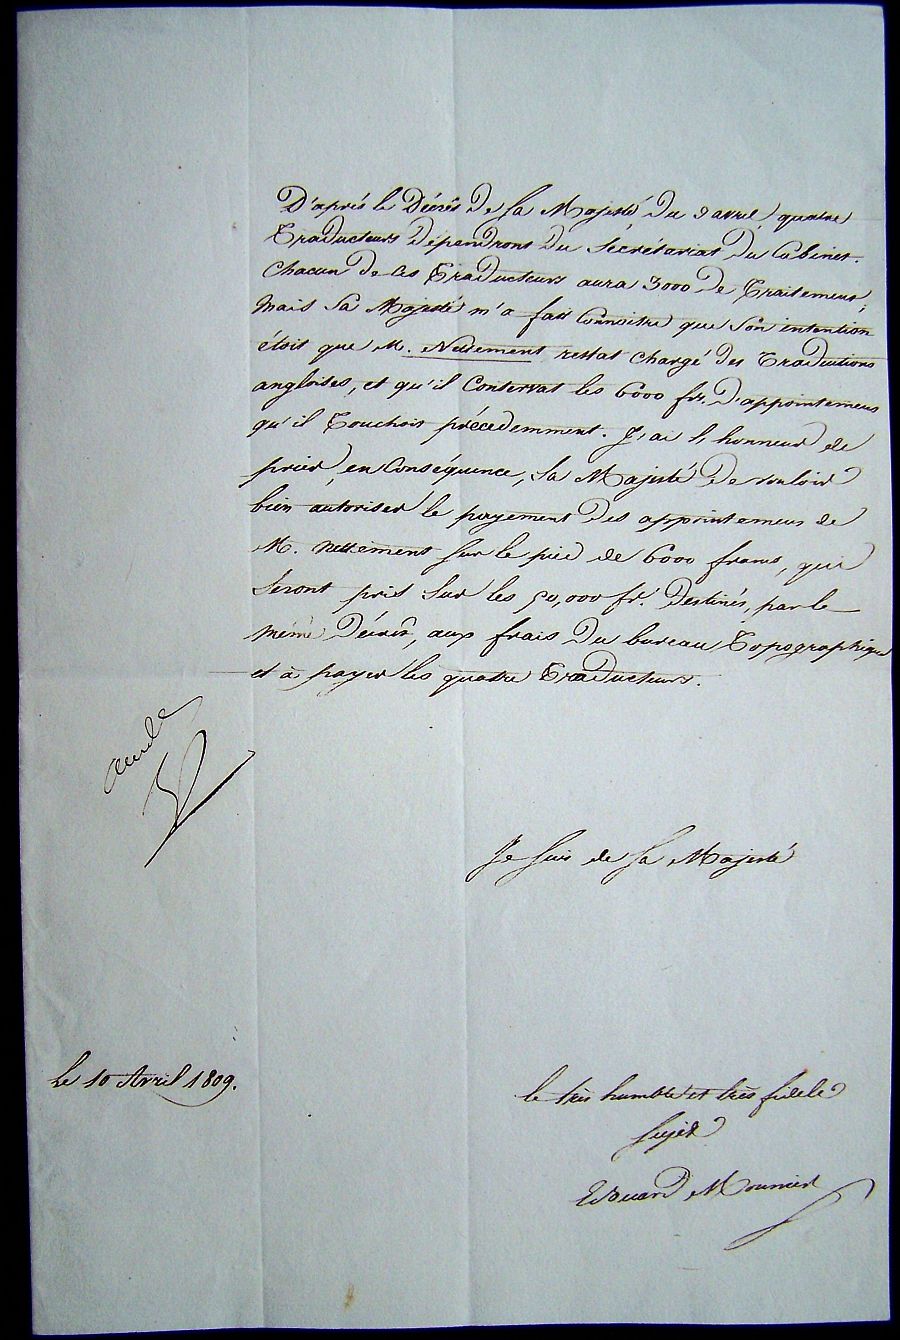 D'après le Décrêt de Sa Majesté, du 9 avril, quatre
Traducteurs dépendront du Secrétariat du Cabinet.
Chacun de ces Traducteurs aura 3000 de Traitement;
Mais Sa Majesté m'a fait Connoitre que Son intention
étoit que M. Nettement restat chargé des Traductions
angloises, et qu'il Conservat les 6000 fr. d'appointemens
qu'il Touchoit précedemment. J'ai l'honneur de
prier, en Conséquence, Sa Majesté de vouloir
bien autoriser le payement des appointemens de
M. Nettement Sur le pied de 6000 francs, qui
Seront pris Sur les 50,000 fr. Destinés, par le
même Décrêt, aux frais du bureau Topographique
et à payer les quatre Traducteurs.
Je Suis de Sa Majesté
Le 10 Avril 1809.
le très humble et très fidele
Sujet
Edouard Mounier